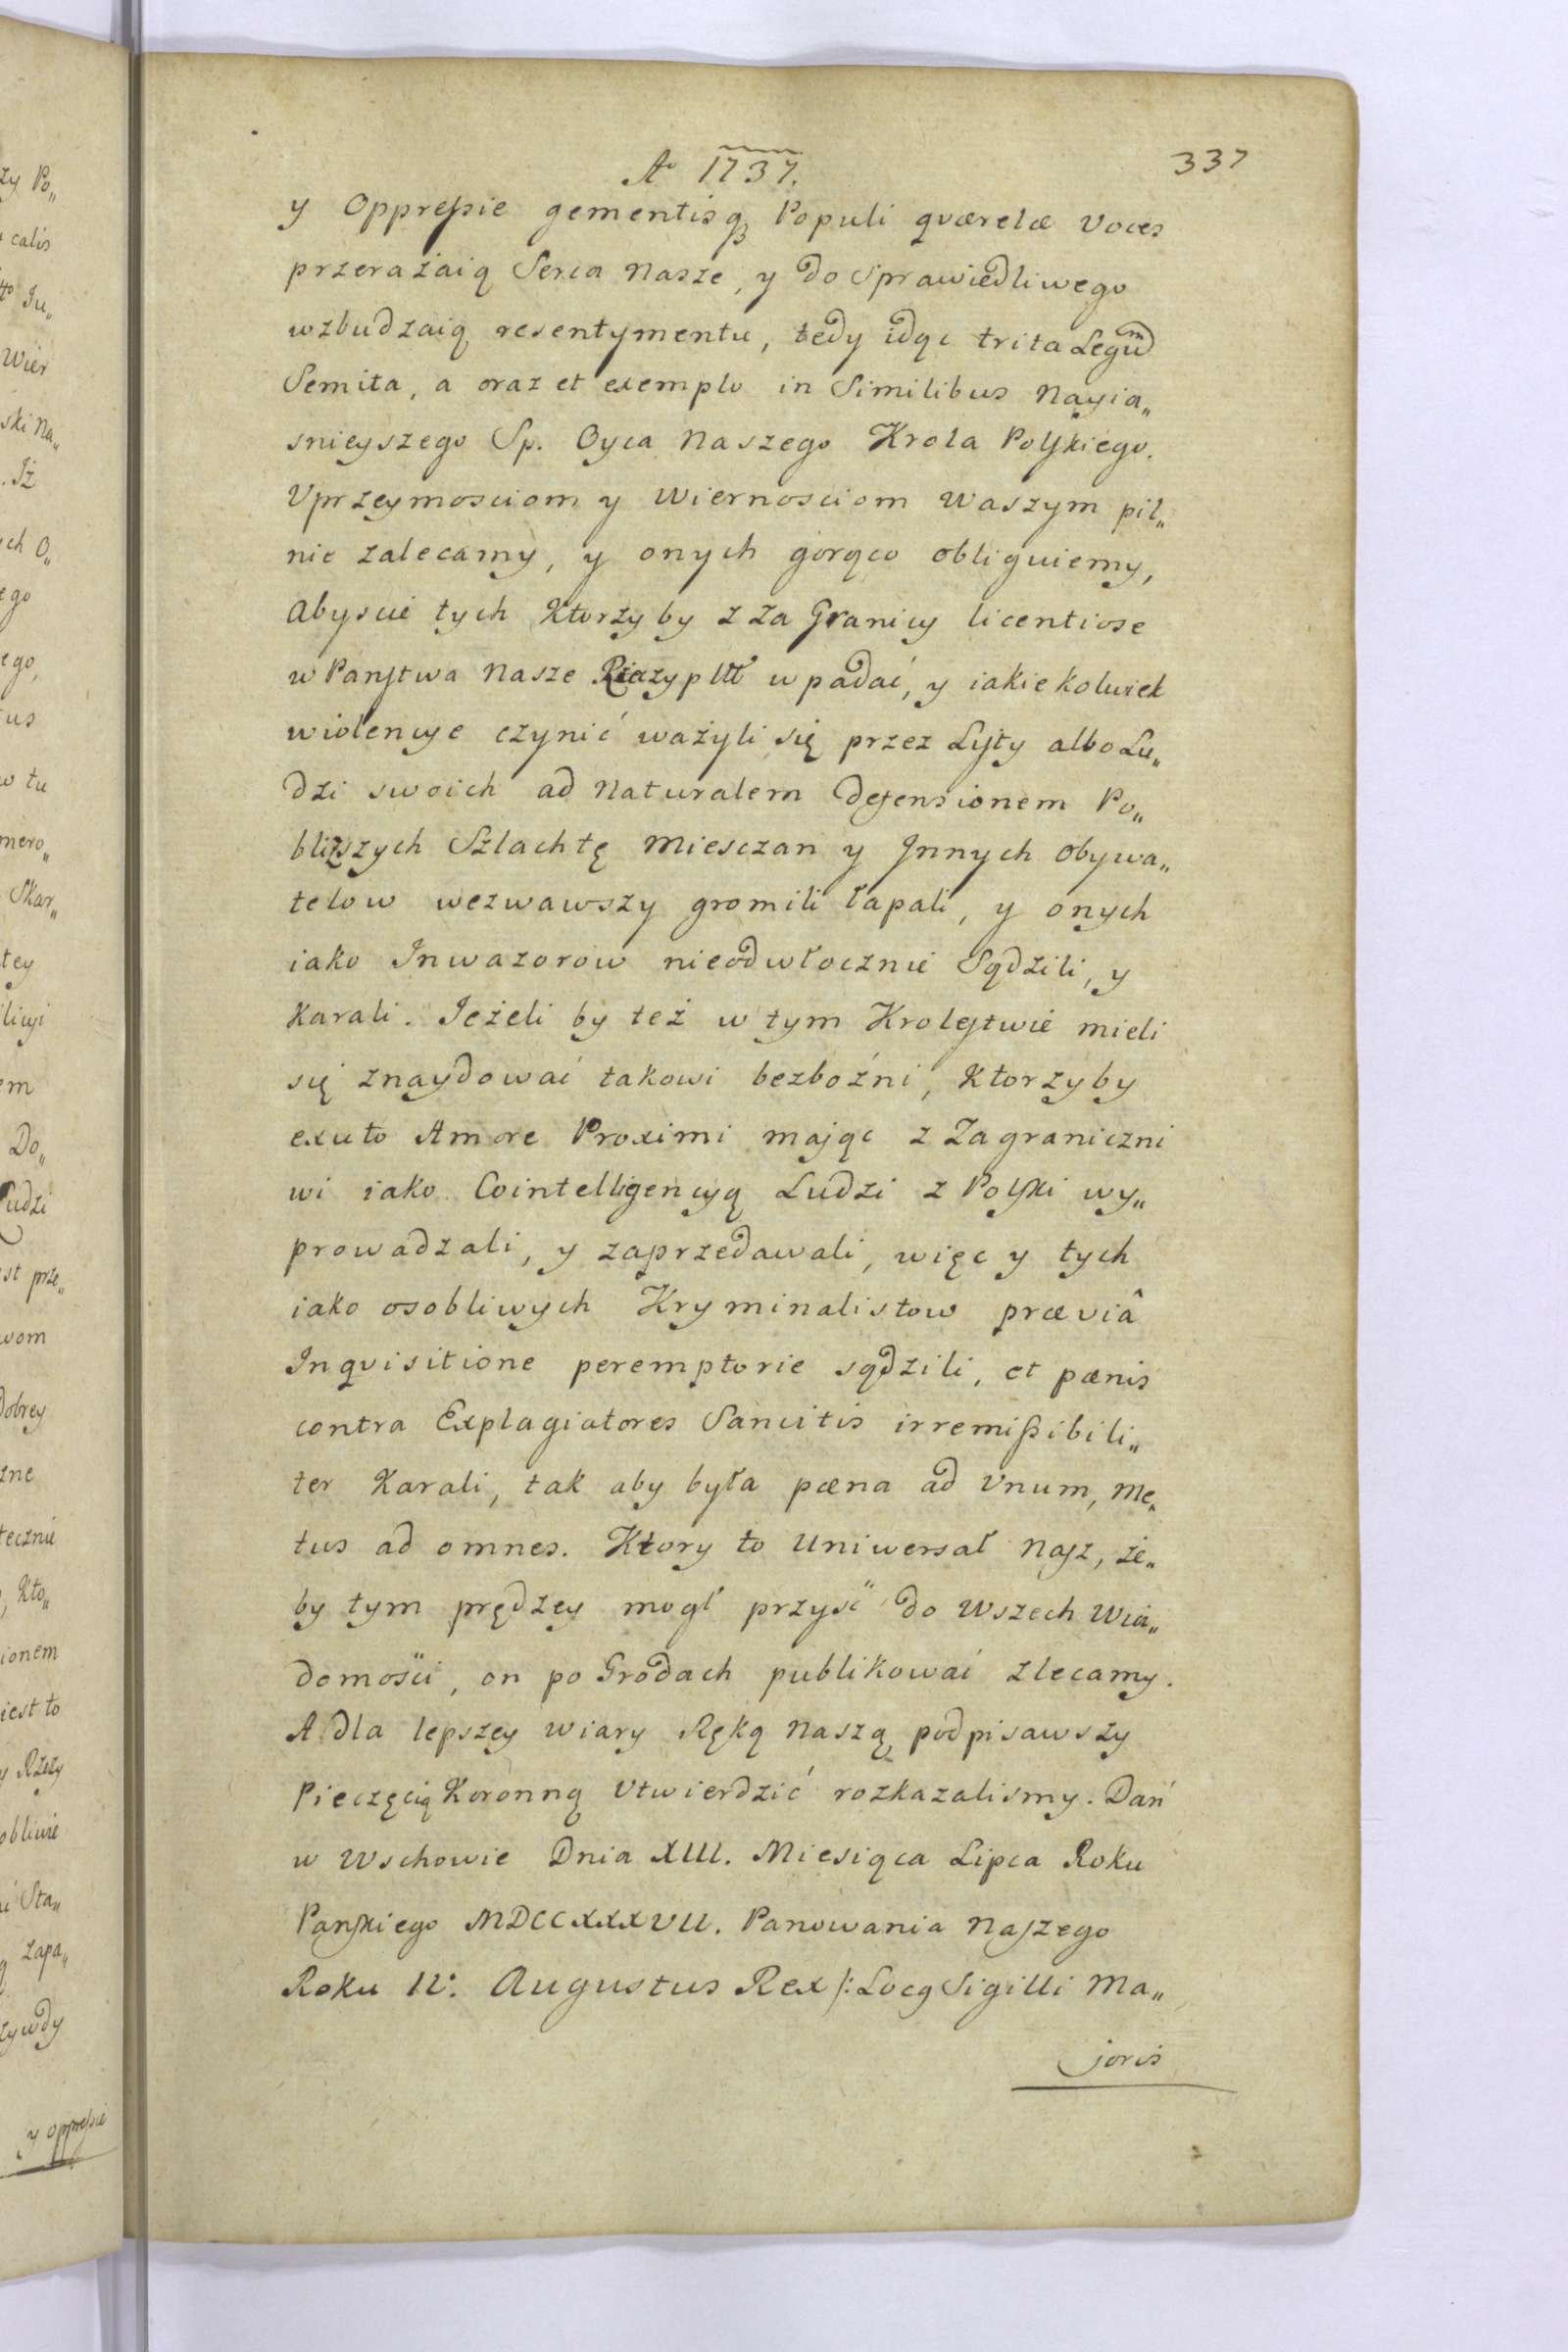 Aº 1737.
337
y Oppreßie gementisqꝫ Populi qværelæ Voces
przerażaią Serca Nasze, y do Sprawiedliwego
wzbudzaią resentymentu, tedy idąc trita Legum
Semita, a oraz et exemplo in Similibus Nayia„
snieyszego Sp. Oyca Naszego Krola Polskiego.
Vprzeymosciom y Wiernosciom Waszym pil„
nie zalecamy, y onych gorąco obliguiemy,
abyscie tych Ktorzyby z za Granicy licentiose
w Panstwa Nasze Rzezyplttł wpadać, y iakiekolwiek
wiolencye czynić ważyli się przez Listy albo Lu„
dzi swoich ad Naturalem Defensionem Po„
bliższych Szlachtę Miesczan y Jnnych Obywa„
telow wezwawszy gromili łapali, y onych
iako Jnwazorow nieodwłocznie Sądzili, y
Karali. Jeżeli by też w tym Krolestwie mieli
się znaydować takowi bezbożni, Ktorzyby
exuto Amore Proximi mając z Zagraniczni
wi iako Cointelligencyą Ludzi z Polski wy„
prowadzali, y zaprzedawali, więc y tych
iako osobliwych Kryminalistow præviâ
Inqvisitione peremptorie sądzili, et pænis
contra Explagiatores Sancitis irremißibili„
ter Karali, tak aby była pæna ad Vnum, Me„
tus ad omnes. Ktory to Uniwersał Nasz, że„
by tym prędzey mogł przyść do Wszech Wia„
domości, on po Grodach publikować zlecamy.
A dla lepszey wiary Ręką Naszą podpisawszy
Pieczęcią Koronną Vtwierdzić rozkazalismy. Dań
w Wschowie Dnia XIII. Miesiąca Lipca Roku
Panskiego MDCCXXXVII. Panowania Naszego
Roku IV: Augustus Rex /: Locq Sigilli Ma„
joris
zy Po„
calis
tto Ju„
Wier
ski Na„
. Iż
ch O„
ego
ego,
tus
w tu
mero„
Skar„
tey
licyi
em
Do„
Ludzi
st prze„
wom
Dobrey
zne
tecznie
, Kto„
ionem
iest to
y Rzezy
obliwie
i Sta„
zapa„
zywdy
y oppreßie